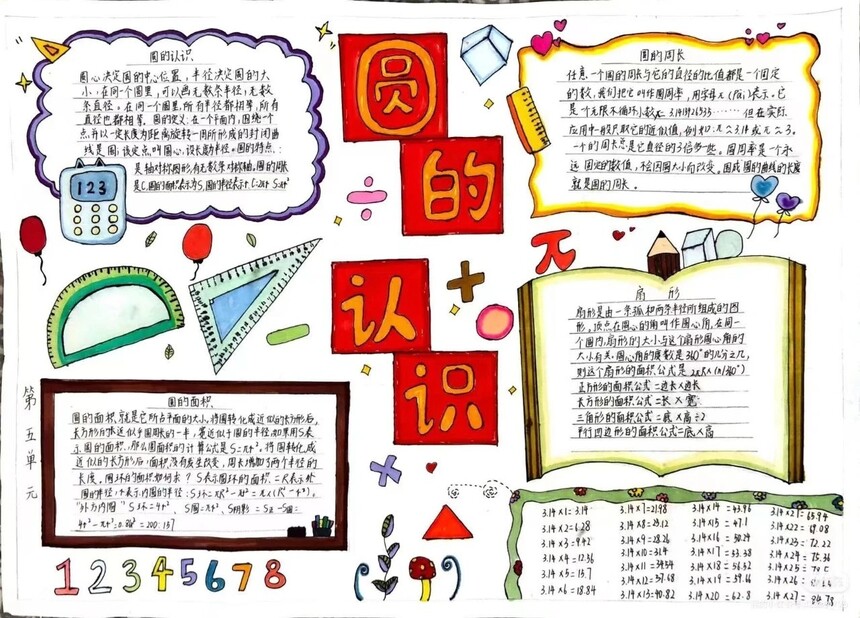 圆的认识
圆的认识
圆心决定圆的中心位置,半径决定圆的大
小,在同一个圆里,可以画无数条半径,无数
条直径。在同一个圆里,所有半径都相等,所有
直径也都相等。圆的定义:在一个平面内,围绕一个
点并以一定长度为距离旋转一周所形成的封闭曲
线是圆,该定点叫圆心,设长度为半径。圆的特点:
是轴对称图形,有无数条对称轴,圆的周长
是C,圆的面积表示为S,圆的半径表示r
123
圆的周长
任意一个圆的周长与它的直径的比值都是一个固定
的数,我们把它叫作圆周率,用字母π(Pài)表示。它
是一个无限不循环小数
但在实际
应用中一般只取它的近似值,例如:π≈3.14或π≈3。
一个的周长总是它直径的3倍多些。圆周率是一个永
远固定的数值,不会因圆大小而改变。围成圆的曲线的长度
就是圆的周长。
π
扇形
扇形是由一条弧和两条半径所组成的图
形。顶点在圆心的角叫作圆心角,在同一
个圆内,扇形的大小与这个扇形圆心角的
大小有关,圆心角的度数是360°的几分之几,
则这个扇形的面积公式是2πR×(n/360°)
正方形的面积公式=边长×边长
长方形的面积公式=长×宽
三角形的面积公式=底×高÷2
平行四边形的面积公式=底×高
第五单元
圆的面积
圆的面积就是它所占平面的大小,将圆转化成近似的长方形后,
长方形的长近似于圆周长的一半,宽近似于圆的半径,如果用S表
示圆的面积,那么圆面积的计算公式是S=πr²,将圆转化成
近似的长方形后,面积没有发生改变,周长增加了两个半径的
长度,圆环的面积如何求?S表示圆环的面积,R表示外
圆的半径,r表示内圆的半径:S环=πR²-πr²=π×(R²-r²)。
"外方内圆"
12345678
3.14×1=3.14
3.14×2=6.28
3.14×3=9.42
3.14×4=12.56
3.14×5=15.7
3.14×6=18.84
3.14×7=21.98
3.14×8=25.12
3.14×9=28.26
3.14×10=31.4
3.14×11=34.54
3.14×12=37.68
3.14×13=40.82
3.14×14=43.96
3.14×15=47.1
3.14×16=50.24
3.14×17=53.38
3.14×18=56.52
3.14×19=59.66
3.14×20=62.8
3.14×21=65.94
3.14×22=69.08
3.14×23=72.22
3.14×24=75.36
3.14×25=
3.14×26=
3.14×27=84.78